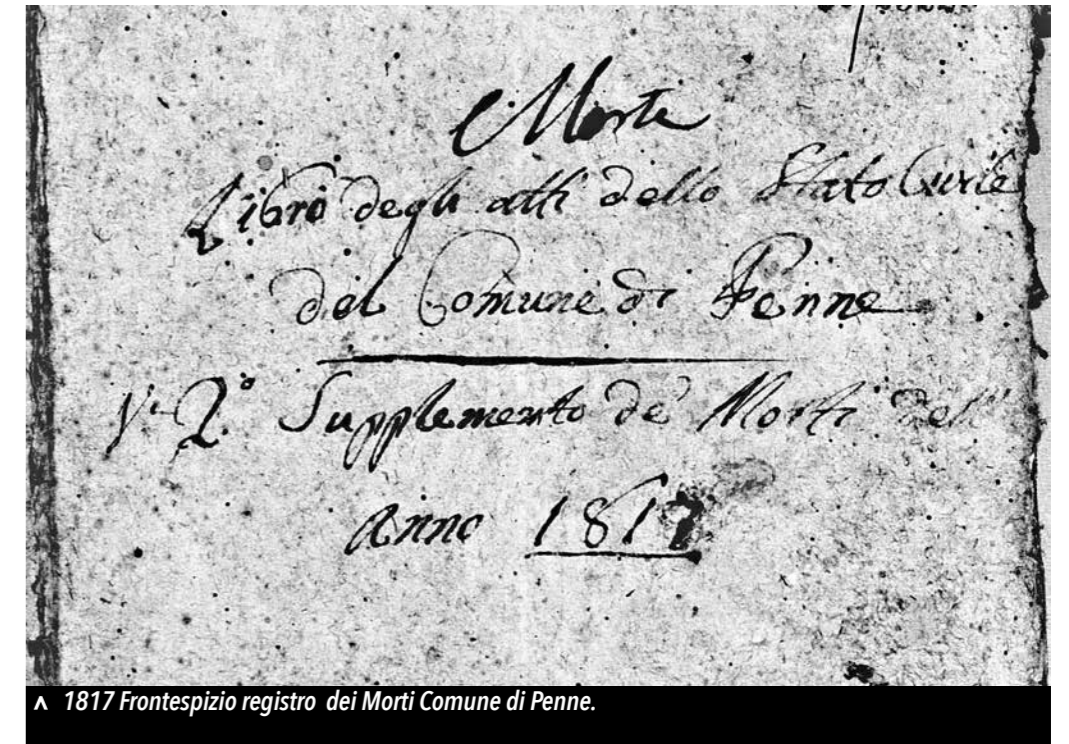 Morte
Libro degli atti dello Stato Civile
del Comune di Penne
2.° Supplemento de' Morti dell'
anno 1817
^ 1817 Frontespizio registro dei Morti Comune di Penne.